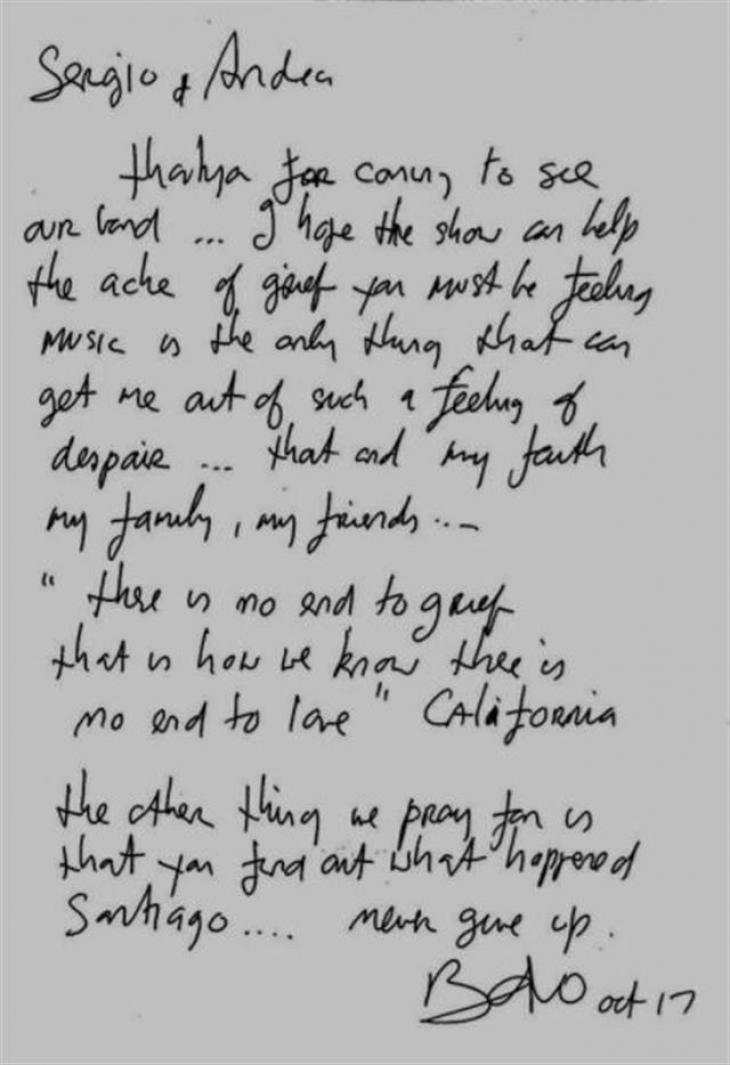 Sergio & Andrea
thankya for coming to see
our band ... I hope the show can help
the ache of grief you must be feeling
music is the only thing that can
get me out of such a feeling of
despair ... that and my faith
my family, my friends ...
"there is no end to grief
that is how we know there is
no end to love" CALiFORNia
the other thing we pray for is
that you find out what happened
Santiago.... never give up.
BONO oct 17